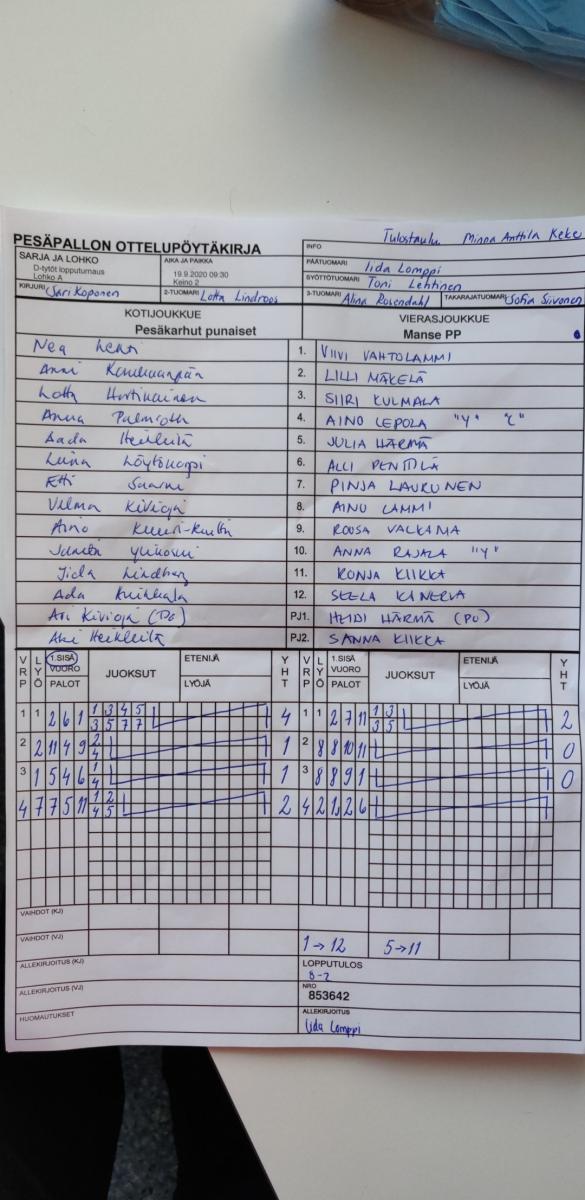 Tulostaulu Minna Anttila Keke
PESÄPALLON OTTELUPÖYTÄKIRJA
INFO
SARJA JA LOHKO
D-tytöt lopputurnaus
Lohko A
AIKA JA PAIKKA
19.9.2020 09:30
Keino 2
PÄÄTUOMARI Iida Lomppi
SYÖTTÖTUOMARI Toni Lehtinen
KIRJURI Sari Koponen
2-TUOMARI Lotta Lindroos
3-TUOMARI Alina Rosendahl
TAKARAJATUOMARI Sofia Siivonen
KOTIJOUKKUE
Pesäkarhut punaiset
VIERASJOUKKUE
Manse PP
Nea Lehti 1. VIIVI VAHTOLAMMI
Anni 2. LILLI MÄKELÄ
Lotta 3. SIIRI KULMALA
Anna Palmroth 4. AINO LEPOLA "Y" "L"
Aada Heikkilä 5. JULIA HÄRMÄ
6. ALLI PENTTILÄ
Etti Saarni 7. PINJA LAURUNEN
Vilma Kivioja 8. AINO LAMMI
Aino 9. ROOSA VALKAMA
10. ANNA RAJALA "Y"
Iida Lindberg 11. RONJA KIIKKA
Ada Kuikkala 12. SEELA KANERVA
Ari Kivioja (PO) PJ1. HEIDI HÄRMÄ (PU)
Aki Heikkilä PJ2. SANNA KIIKKA
VRP LYÖ 1.SISÄ VUORO PALOT JUOKSUT ETENIJÄ LYÖJÄ YHT VRP LYÖ 1.SISÄ VUORO PALOT JUOKSUT ETENIJÄ LYÖJÄ YHT
1 1 2 6 1 1 3 4 5 4 1 1 2 7 11 1 3 2
3 5 7 7 3 5
2 2 11 4 9 2 1 2 8 8 10 11 0
4
3 1 5 4 6 1 1 3 8 8 9 1 0
4
4 7 7 5 11 1 2 2 4 2 1 2 6
4 5
VAIHDOT (KJ)
VAIHDOT (VJ) 1→12 5→11
ALLEKIRJOITUS (KJ)
LOPPUTULOS
8-2
ALLEKIRJOITUS (VJ)
NRO
853642
HUOMAUTUKSET
ALLEKIRJOITUS
Iida Lomppi